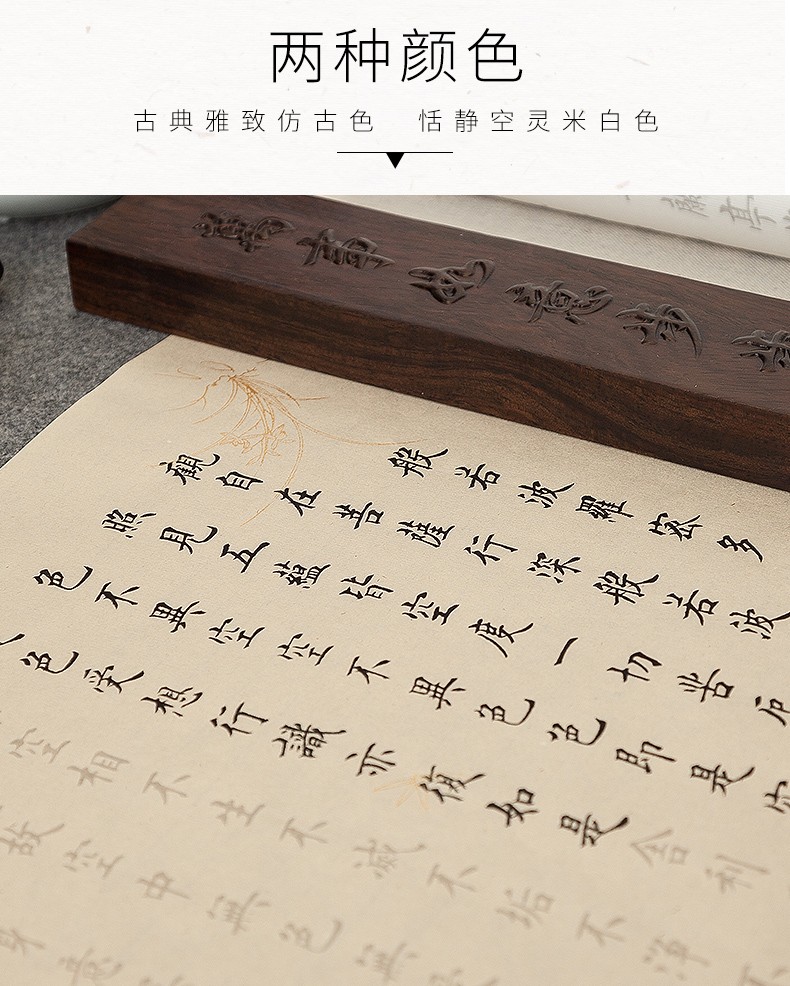 两种颜色
古典雅致仿古色 恬静空灵米白色
萬事如意步步
般若波羅密多
觀自在菩薩行深般若波
照見五蘊皆空度一切苦厄
色不異空空不異色色即是空
色受想行識亦復如是舍利
空相不生不滅不垢不淨
故空中無色無
身意